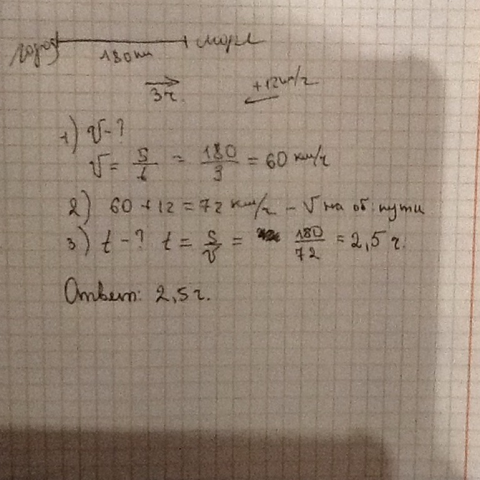 город море
180км
3ч. +12км/ч
1) V-?
V = S/t = 180/3 = 60 км/ч
2) 60 + 12 = 72 км/ч - V на об. пути
3) t - ? t = S/V = 180/72 = 2,5 ч.
Ответ: 2,5ч.